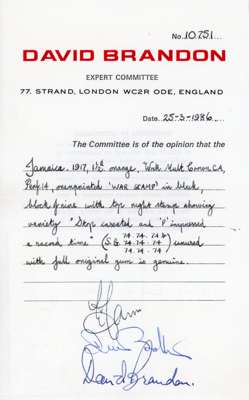 No. 10,751
DAVID BRANDON
EXPERT COMMITTEE
77, STRAND, LONDON WC2R ODE, ENGLAND
Date. 25-3-1986
The Committee is of the opinion that the
Jamaica. 1917, 1½d orange, Wmk Mult Crown C.A.
Perf. 14, overprinted 'WAR STAMP' in black,
block of nine with top right stamp showing
variety "Stop inserted and 'P' impressed
a second time" (S.G. 74.74.74b 74.74.74 74.74.74) unused
with full original gum is genuine.
David Brandon.